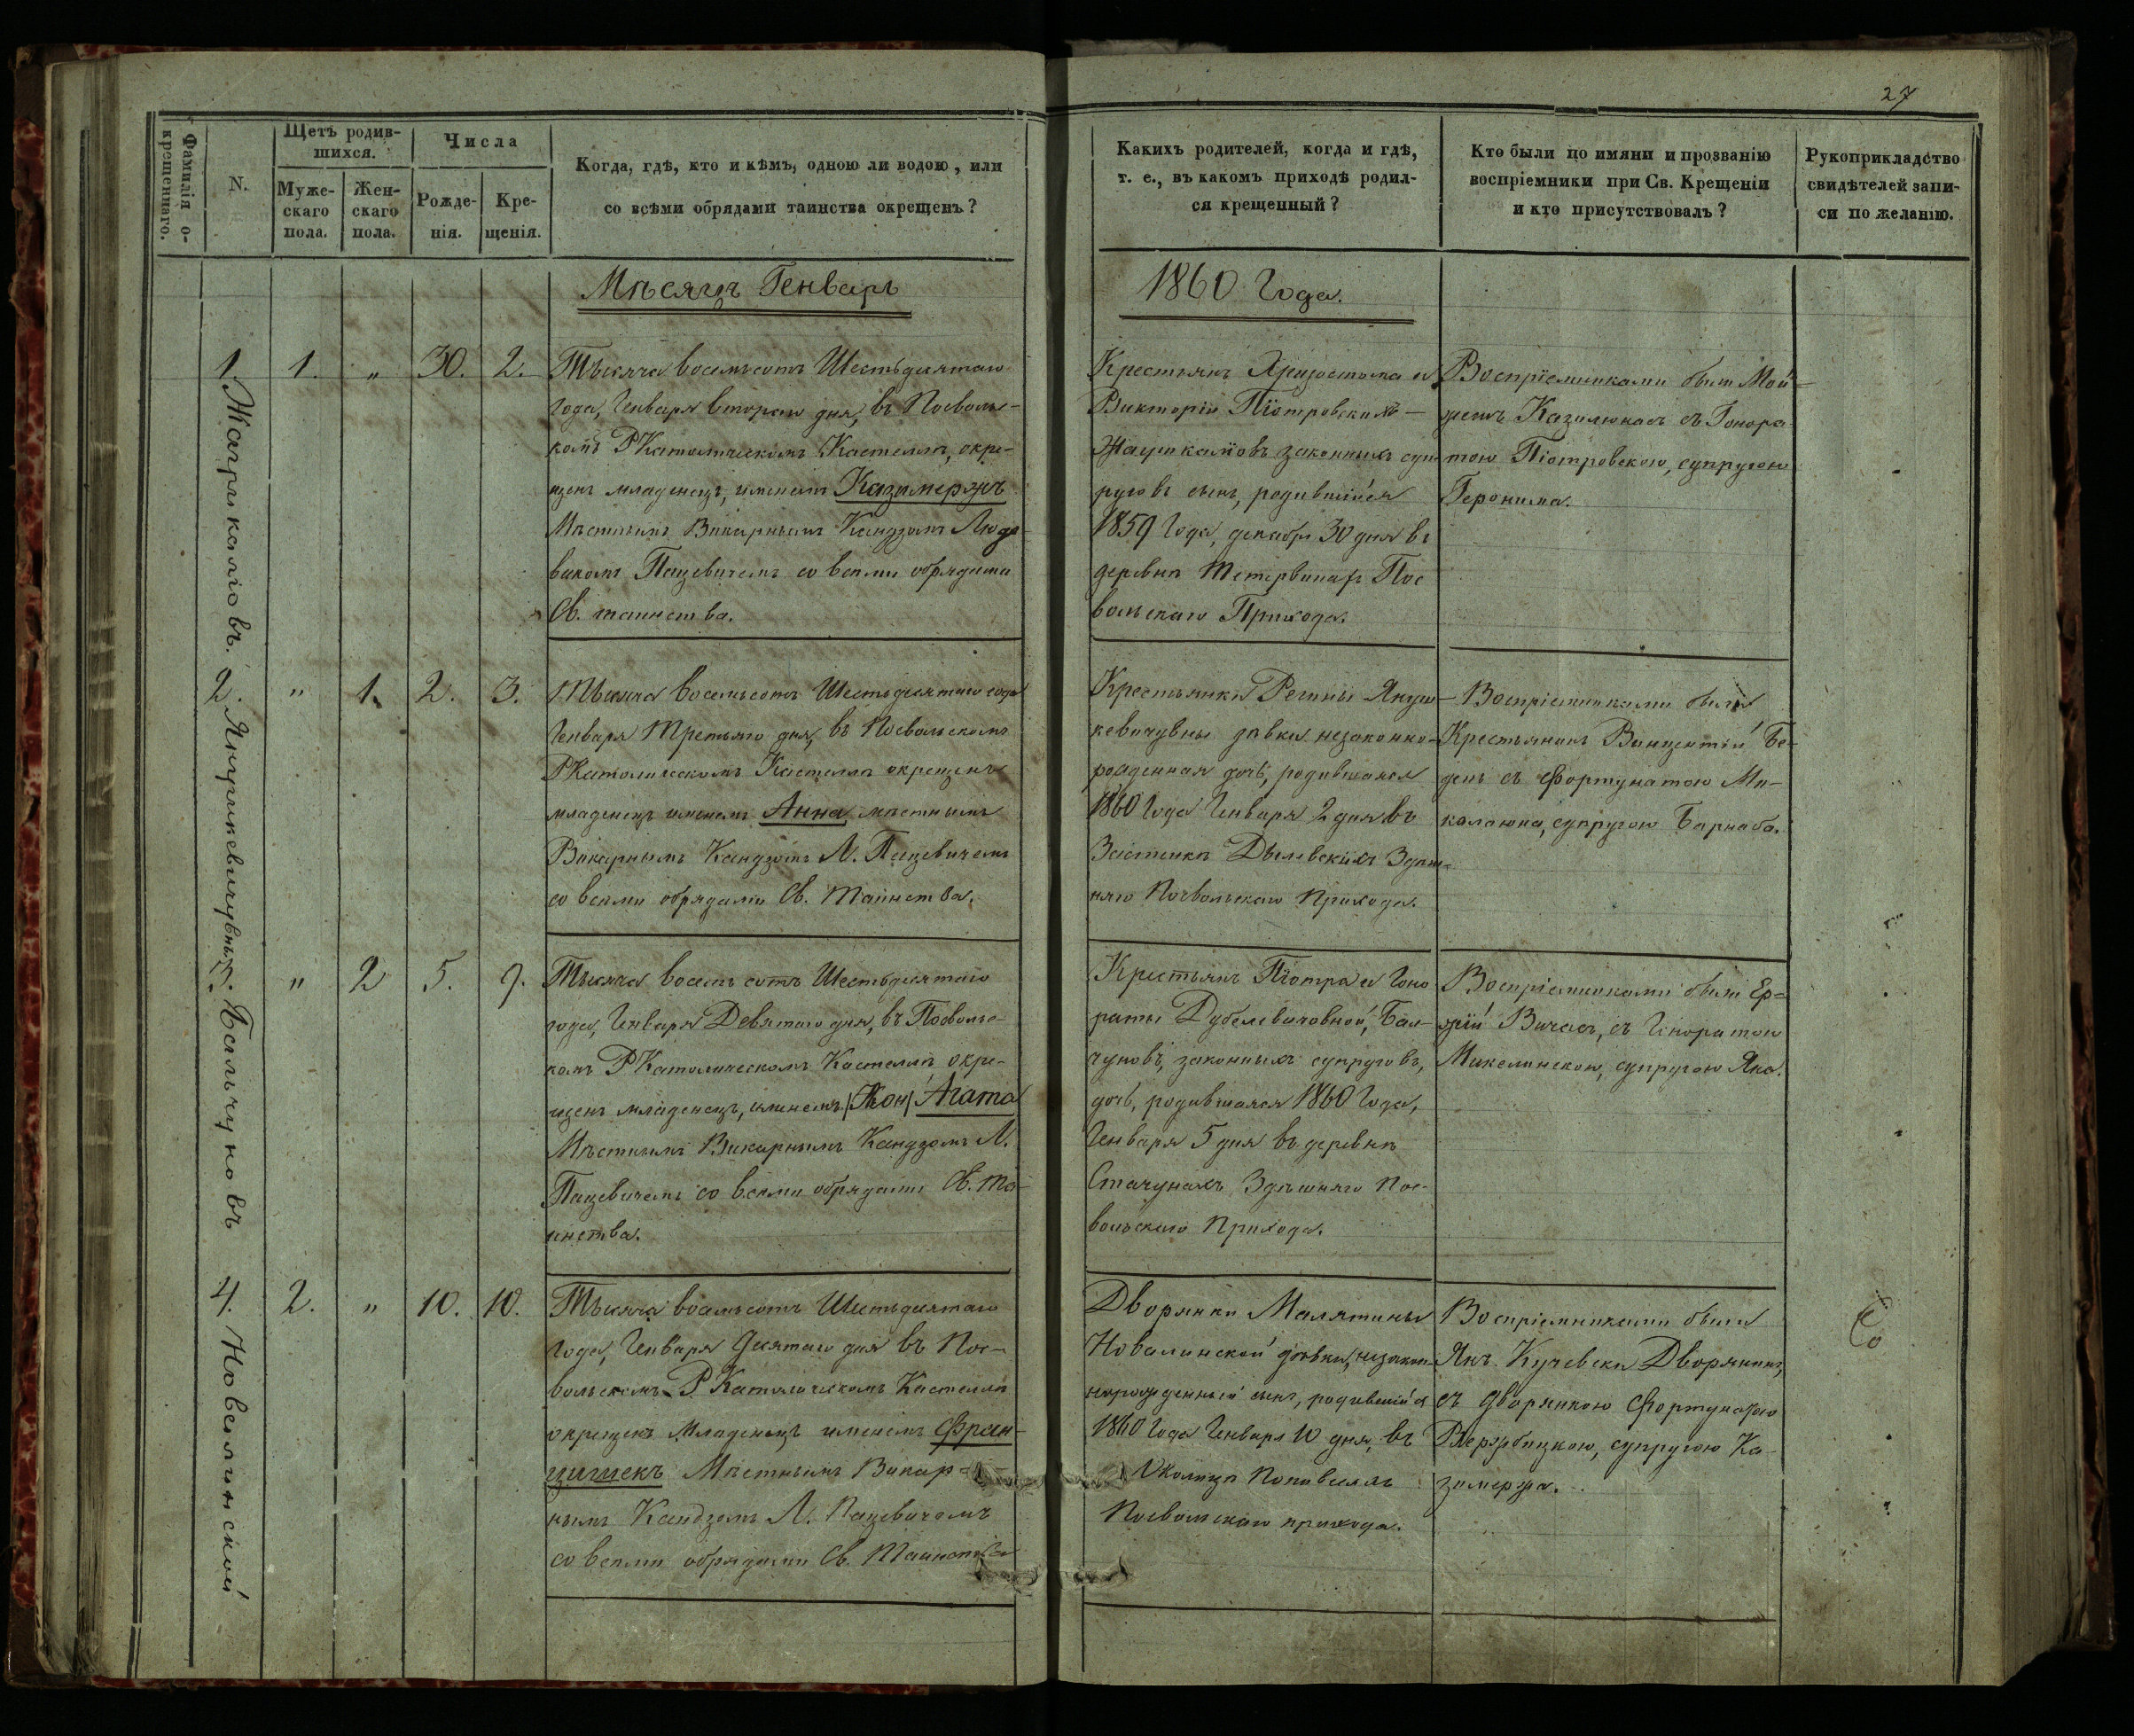 27
Фамилія о-
крещеннаго.
N.
Щетъ родив-
шихся.
Муже-
скаго
пола.
Жен-
скаго
пола.
Числа
Рожде-
нія.
Кре-
щенія.
Когда, гдѣ, кто и кѣмъ, одною ли водою, или
со всѣми обрядами таинства окрещенъ?
Какихъ родителей, когда и гдѣ,
т. е., въ какомъ приходѣ родил-
ся крещенный?
Кто были по имяни и прозванію
воспріемники при Св. Крещеніи
и кто присутствовалъ?
Рукоприкладство
свидѣтелей запи-
си по желанію.
Мѣсяцъ Генварь
1860 Года.
1. Жагрикалiовъ.
1. „ 30. 2.
Тысяча восемьсотъ Шестьдесятаго
года, Генваря втораго дня, въ Посволь-
комъ РКатолическомъ Костелѣ, окре-
щенъ младенецъ, именемъ Казимержъ
Мѣстнымъ Викарнымъ Ксендзомъ Людо-
викомъ Пацевичемъ со всѣми обрядами
Св. таинства.
Крестьянъ и
Викторіи Піотровскихъ-
законныхъ суп-
руговъ сынъ, родившійся
1859 Года, декабря 30 дня въ
деревнѣ Пос-
вольскаго Прихода.
Воспріемниками были Мой-
жешъ Казилюнасъ съ Гонора-
тою Піотровскою, супругою
Геронима.
2. Янушкевичувны.
„ 1. 2. 3.
Тысяча восемьсотъ Шестьдесятаго года
Генваря Третьяго дня, въ Посвольскомъ
РКатолическомъ Костелѣ окрещенъ
младенецъ именемъ Анна мѣстнымъ
Викарнымъ Ксендзомъ Л. Пацевичемъ
со всѣми обрядами Св. Таинства.
Крестьянки Регины Януш-
кевичувны дѣвки незаконно-
рожденная дочь, родившаяся
1860 Года Генваря 2 дня въ
Застенкѣ Дылевскихъ Здѣш-
няго Посвольскаго Прихода.
Воспріемниками были
Крестьянинъ Винцентій Бе-
денъ съ Фортунатою Ми-
калаюна, супругою Барнабы.
3. Бальчуновъ
„ 2 5. 9.
Тысяча восемь сотъ Шестьдесятаго
года, Генваря Девятаго дня, въ Посволь-
комъ РКатолическомъ Костелѣ окре-
щенъ младенецъ, именемъ Агата
Мѣстнымъ Викарнымъ Ксендзомъ Л.
Пацевичемъ со всѣми обрядами Св. Та-
инства.
Крестьянъ Піотра и Гоно-
раты Дубелевичовной, Бал-
чуновъ, законныхъ супруговъ,
дочь, родившаяся 1860 Года,
Генваря 5 дня въ деревнѣ
Стачунахъ Здѣшняго Пос-
вольскаго Прихода.
Воспріемниками были Ер-
жій Вичасъ, съ Гоноратою
Микелинскою, супругою Яка.
4. Новелинской
2. „ 10. 10.
Тысяча восемьсотъ Шестьдесятаго
года, Генваря Десятаго дня въ Пос-
вольскомъ Р.Католическомъ Костелѣ
окрещенъ Младенецъ именемъ Фран-
цишекъ Мѣстнымъ Викар-
нымъ Ксендзомъ Л. Пацевичемъ
со всѣми обрядами Св. Таинства
Дворянки Малятины
Новалинской дѣвки, незакон-
норожденный сынъ, родившійся
1860 Года Генваря 10 дня, въ
Околицѣ
Посвольскаго прихода.
Воспріемниками были
Янъ Кучевски Дворянинъ,
съ дворянкою Фортунатою
супругою Ка-
зимержа.